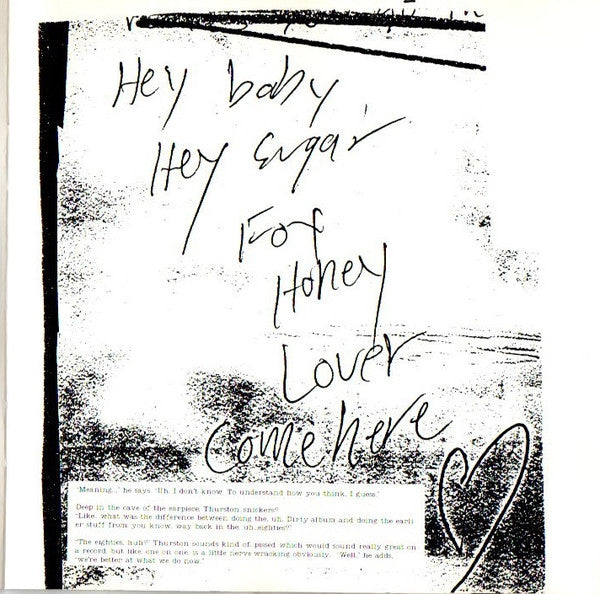 Hey baby
Hey Sugar
Fox
Honey
Lover
Come here
"Meaning..." he says. "Uh, I don't know. To understand how you think, I guess."
Deep in the cave of the earpiece, Thurston snickers?
"Like, what was the difference between, doing the, uh, Dirty album and doing the earli
er stuff from, you know, way back in the, uh..eighties?"
"The eighties, huh?" Thurston sounds kind of..pissed which would sound really great on
a record, but like one on one, is a little nerve wracking obviously. "Well," he adds,
"we're better at what we do now."